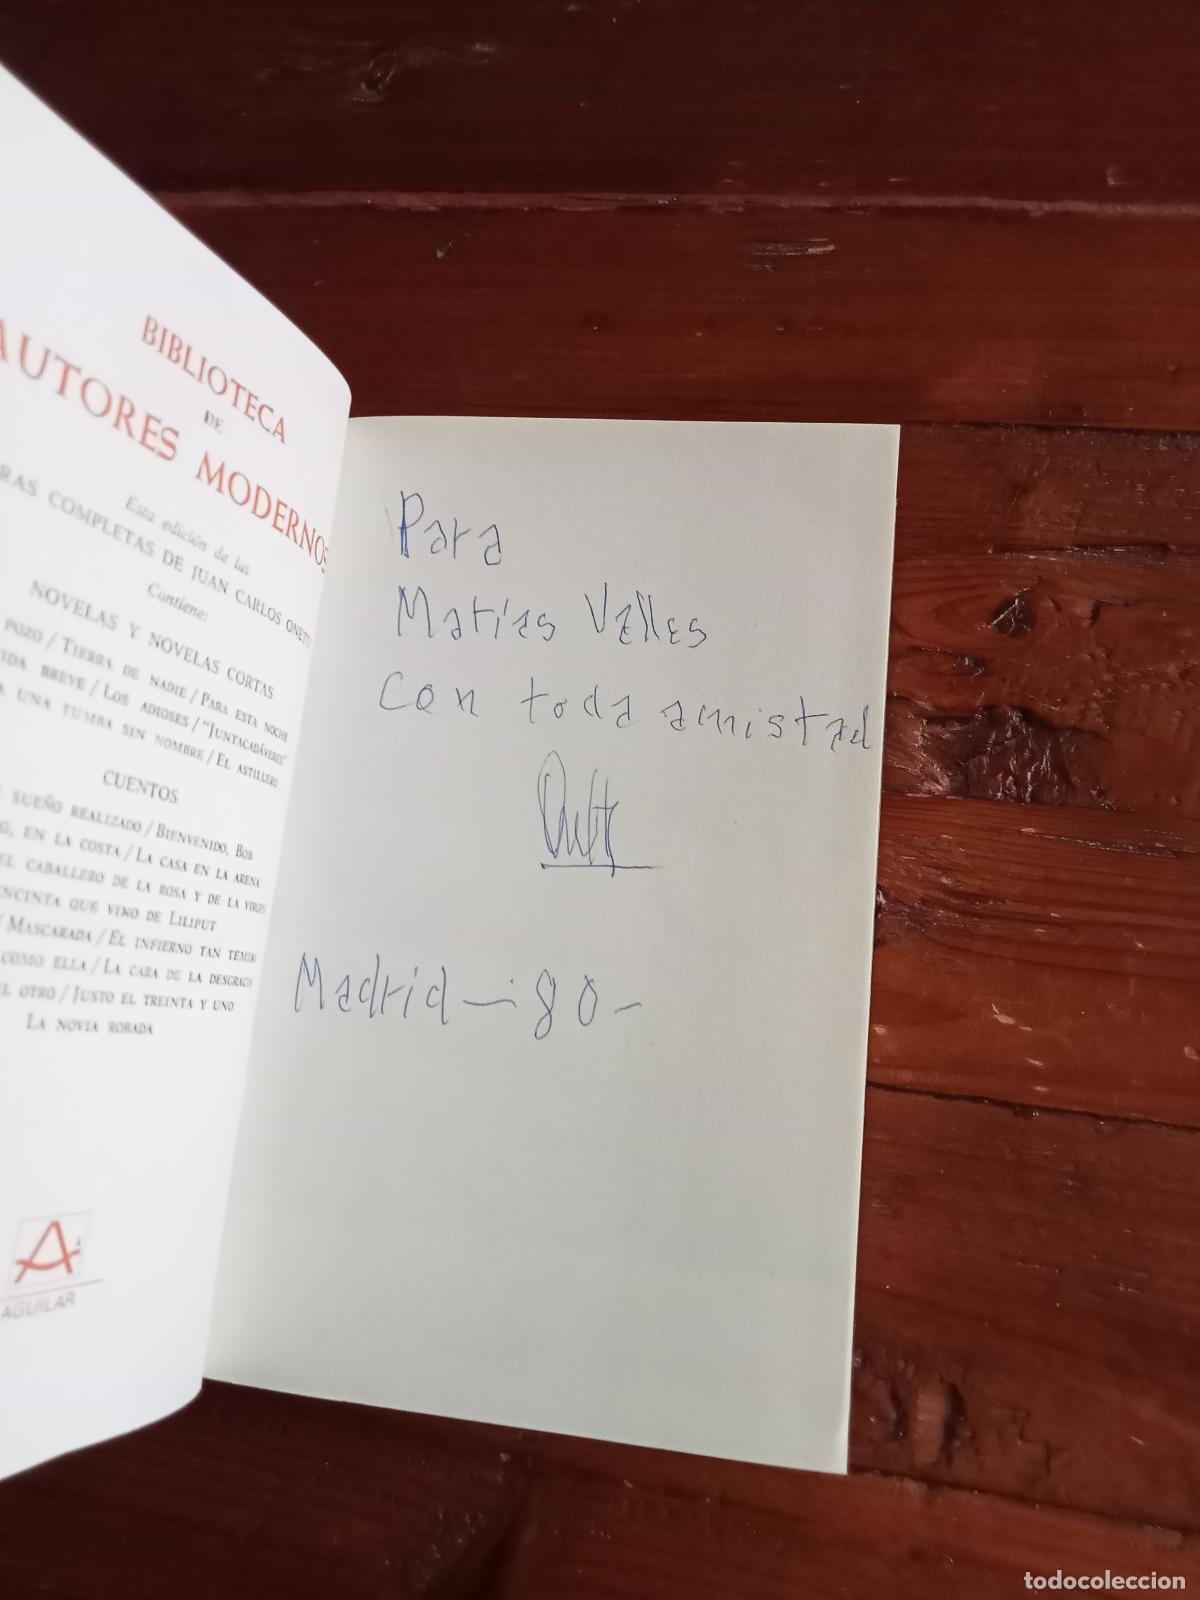 BIBLIOTECA
DE
AUTORES MODERNOS
Esta edición de las
RAS COMPLETAS DE JUAN CARLOS ONETTI
Contiene:
NOVELAS Y NOVELAS CORTAS
POZO / TIERRA DE NADIE / PARA ESTA NOCHE
IDA BREVE / LOS ADIOSES / "JUNTACADÁVERES"
A UNA TUMBA SIN NOMBRE / EL ASTILLERO
CUENTOS
SUEÑO REALIZADO / BIENVENIDO, BOB
G, EN LA COSTA / LA CASA EN LA ARENA
EL CABALLERO DE LA ROSA Y DE LA VIRGEN
NCINTA QUE VINO DE LILIPUT
/ MASCARADA / EL INFIERNO TAN TEMIDO
COMO ELLA / LA CARA DE LA DESGRACIA
EL OTRO / JUSTO EL TREINTA Y UNO
LA NOVIA ROBADA
AGUILAR
Para
Matías Valles
Con toda amistad
Onetti
Madrid - 80 -
todocoleccion